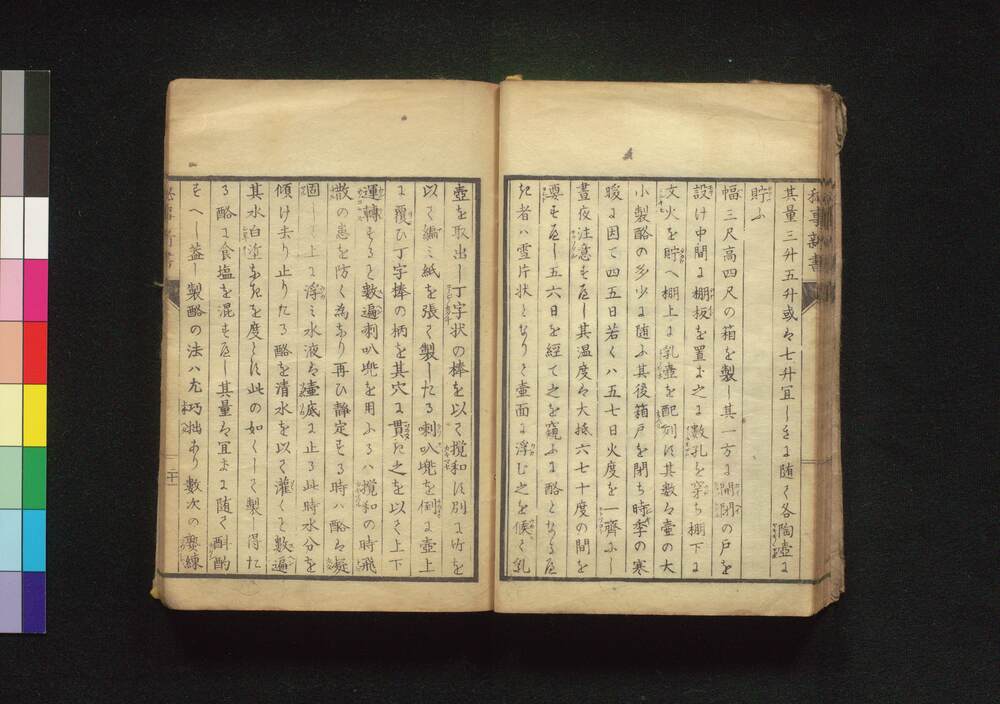 其量三升五升或は七升宜しきに随て各陶壺に
貯ふ
幅三尺高四尺の箱を製し其一方に開閉の戸を
設け中間に棚板を置き之に数孔を穿ち棚下に
文火を貯へ棚上に乳壺を配列す其数は壺の大
小製酪の多少に随ふ其後箱戸を閉ち時季の寒
暖に因て四五日若くハ五七日火度を一齊にし
晝夜注意すべし其温度は大抵六七十度の間を
要すべし五六日を経て之を窺ふに酪となるべ
き者ハ雪片状となりて壺面に浮む之を候て乳
壺を取出し丁字状の棒を以て攪和す別に竹を
以て編ミ紙を張て製したる喇叭兠を倒に壺上
に覆ひ丁字棒の柄を其穴に貫き之を以て上下
運轉すること数遍喇叭兠を用ふるハ攪和の時飛
散の患を防く為なり再ひ静定する時ハ酪は凝
固して上に浮ミ水液は壷底に止る此時水分を
傾け去り止りたる酪を清水を以て灌くこと数遍
其水白淡なきを度とす此の如くして製し得た
る酪に食塩を混すべし其量は宜きに随て斟酌
すへし蓋し製酪の法ハ尤巧拙あり数次の練